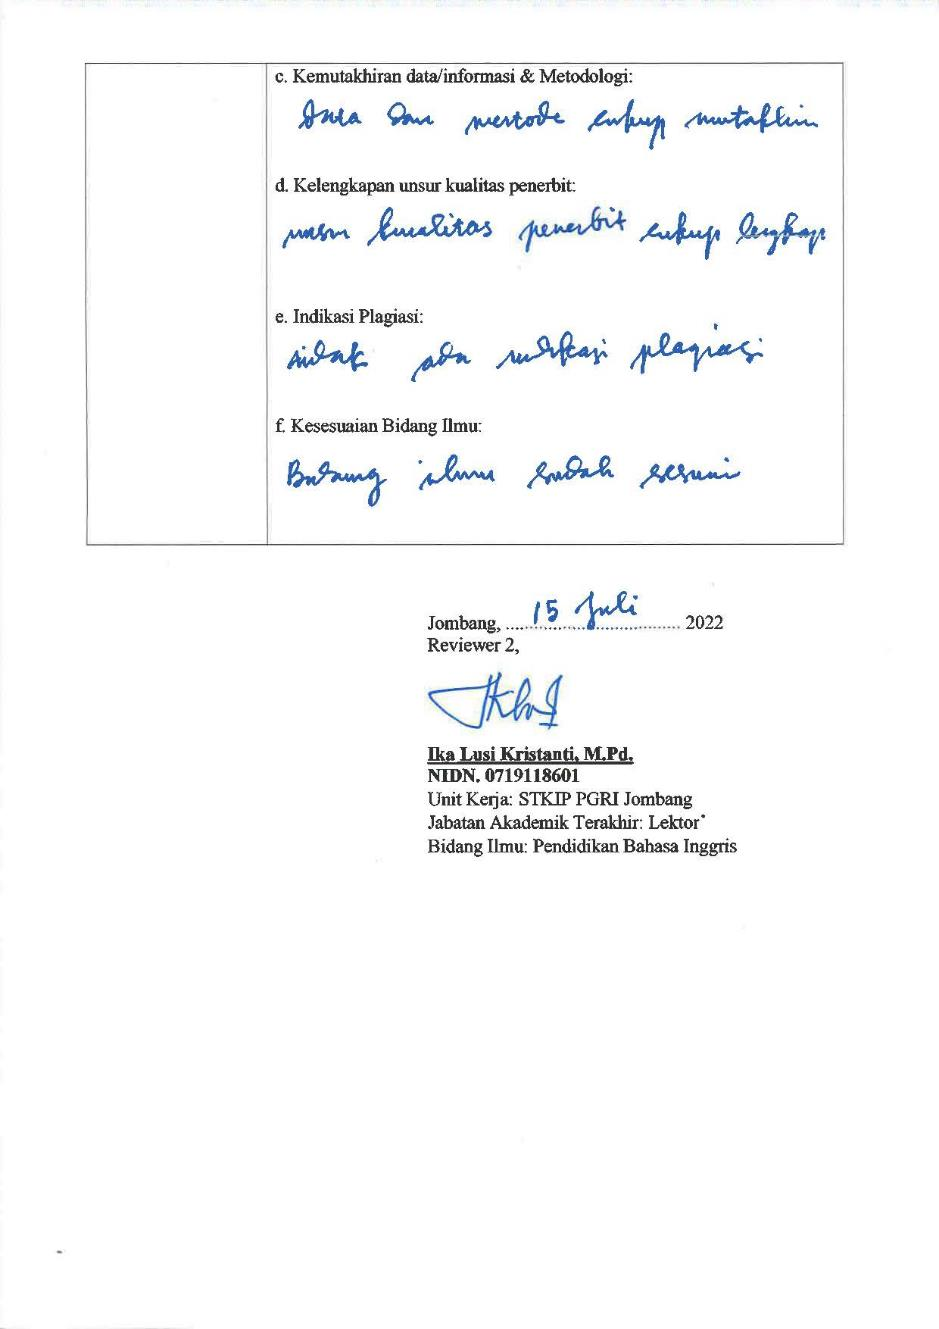 c. Kemutakhiran data/informasi & Metodologi:
Data dan metode cukup mutakhir
d. Kelengkapan unsur kualitas penerbit:
unsur kualitas penerbit cukup lengkap
e. Indikasi Plagiasi:
tidak ada indikasi plagiasi
f. Kesesuaian Bidang Ilmu:
Bidang ilmu sudah sesuai
Jombang, 15 Juli 2022
Reviewer 2,
Ika Lusi Kristanti, M.Pd.
NIDN. 0719118601
Unit Kerja: STKIP PGRI Jombang
Jabatan Akademik Terakhir: Lektor
Bidang Ilmu: Pendidikan Bahasa Inggris